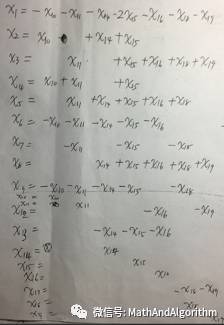 x₁ = - x₁₀ - x₁₁ - x₁₄ - 2x₁₅ - x₁₆ - x₁₈ - x₁₉
x₂ = x₁₀ + x₁₄ + x₁₅
x₃ = x₁₁ + x₁₅ + x₁₆ + x₁₈ + x₁₉
x₄ = x₁₀ + x₁₁ + x₁₅
x₅ = x₁₁ + x₁₄ + x₁₅ + x₁₆ + x₁₈
x₆ = - x₁₀ - x₁₁ - x₁₄ - x₁₅ - x₁₆
x₇ = - x₁₁ - x₁₅ - x₁₈
x₈ = x₁₄ + x₁₅ + x₁₆ + x₁₈ + x₁₉
x₉ = - x₁₀ - x₁₁ - x₁₄ - x₁₅ - x₁₈
x₁₀ = x₁₀
x₁₁ = x₁₁
x₁₂ = - x₁₆ - x₁₉
x₁₃ = - x₁₄ - x₁₅ - x₁₆
x₁₄ = x₁₄
x₁₅ = x₁₅
x₁₆ = x₁₆
x₁₇ = - x₁₈ - x₁₉
x₁₈ =
微信号: MathAndAlgorithm